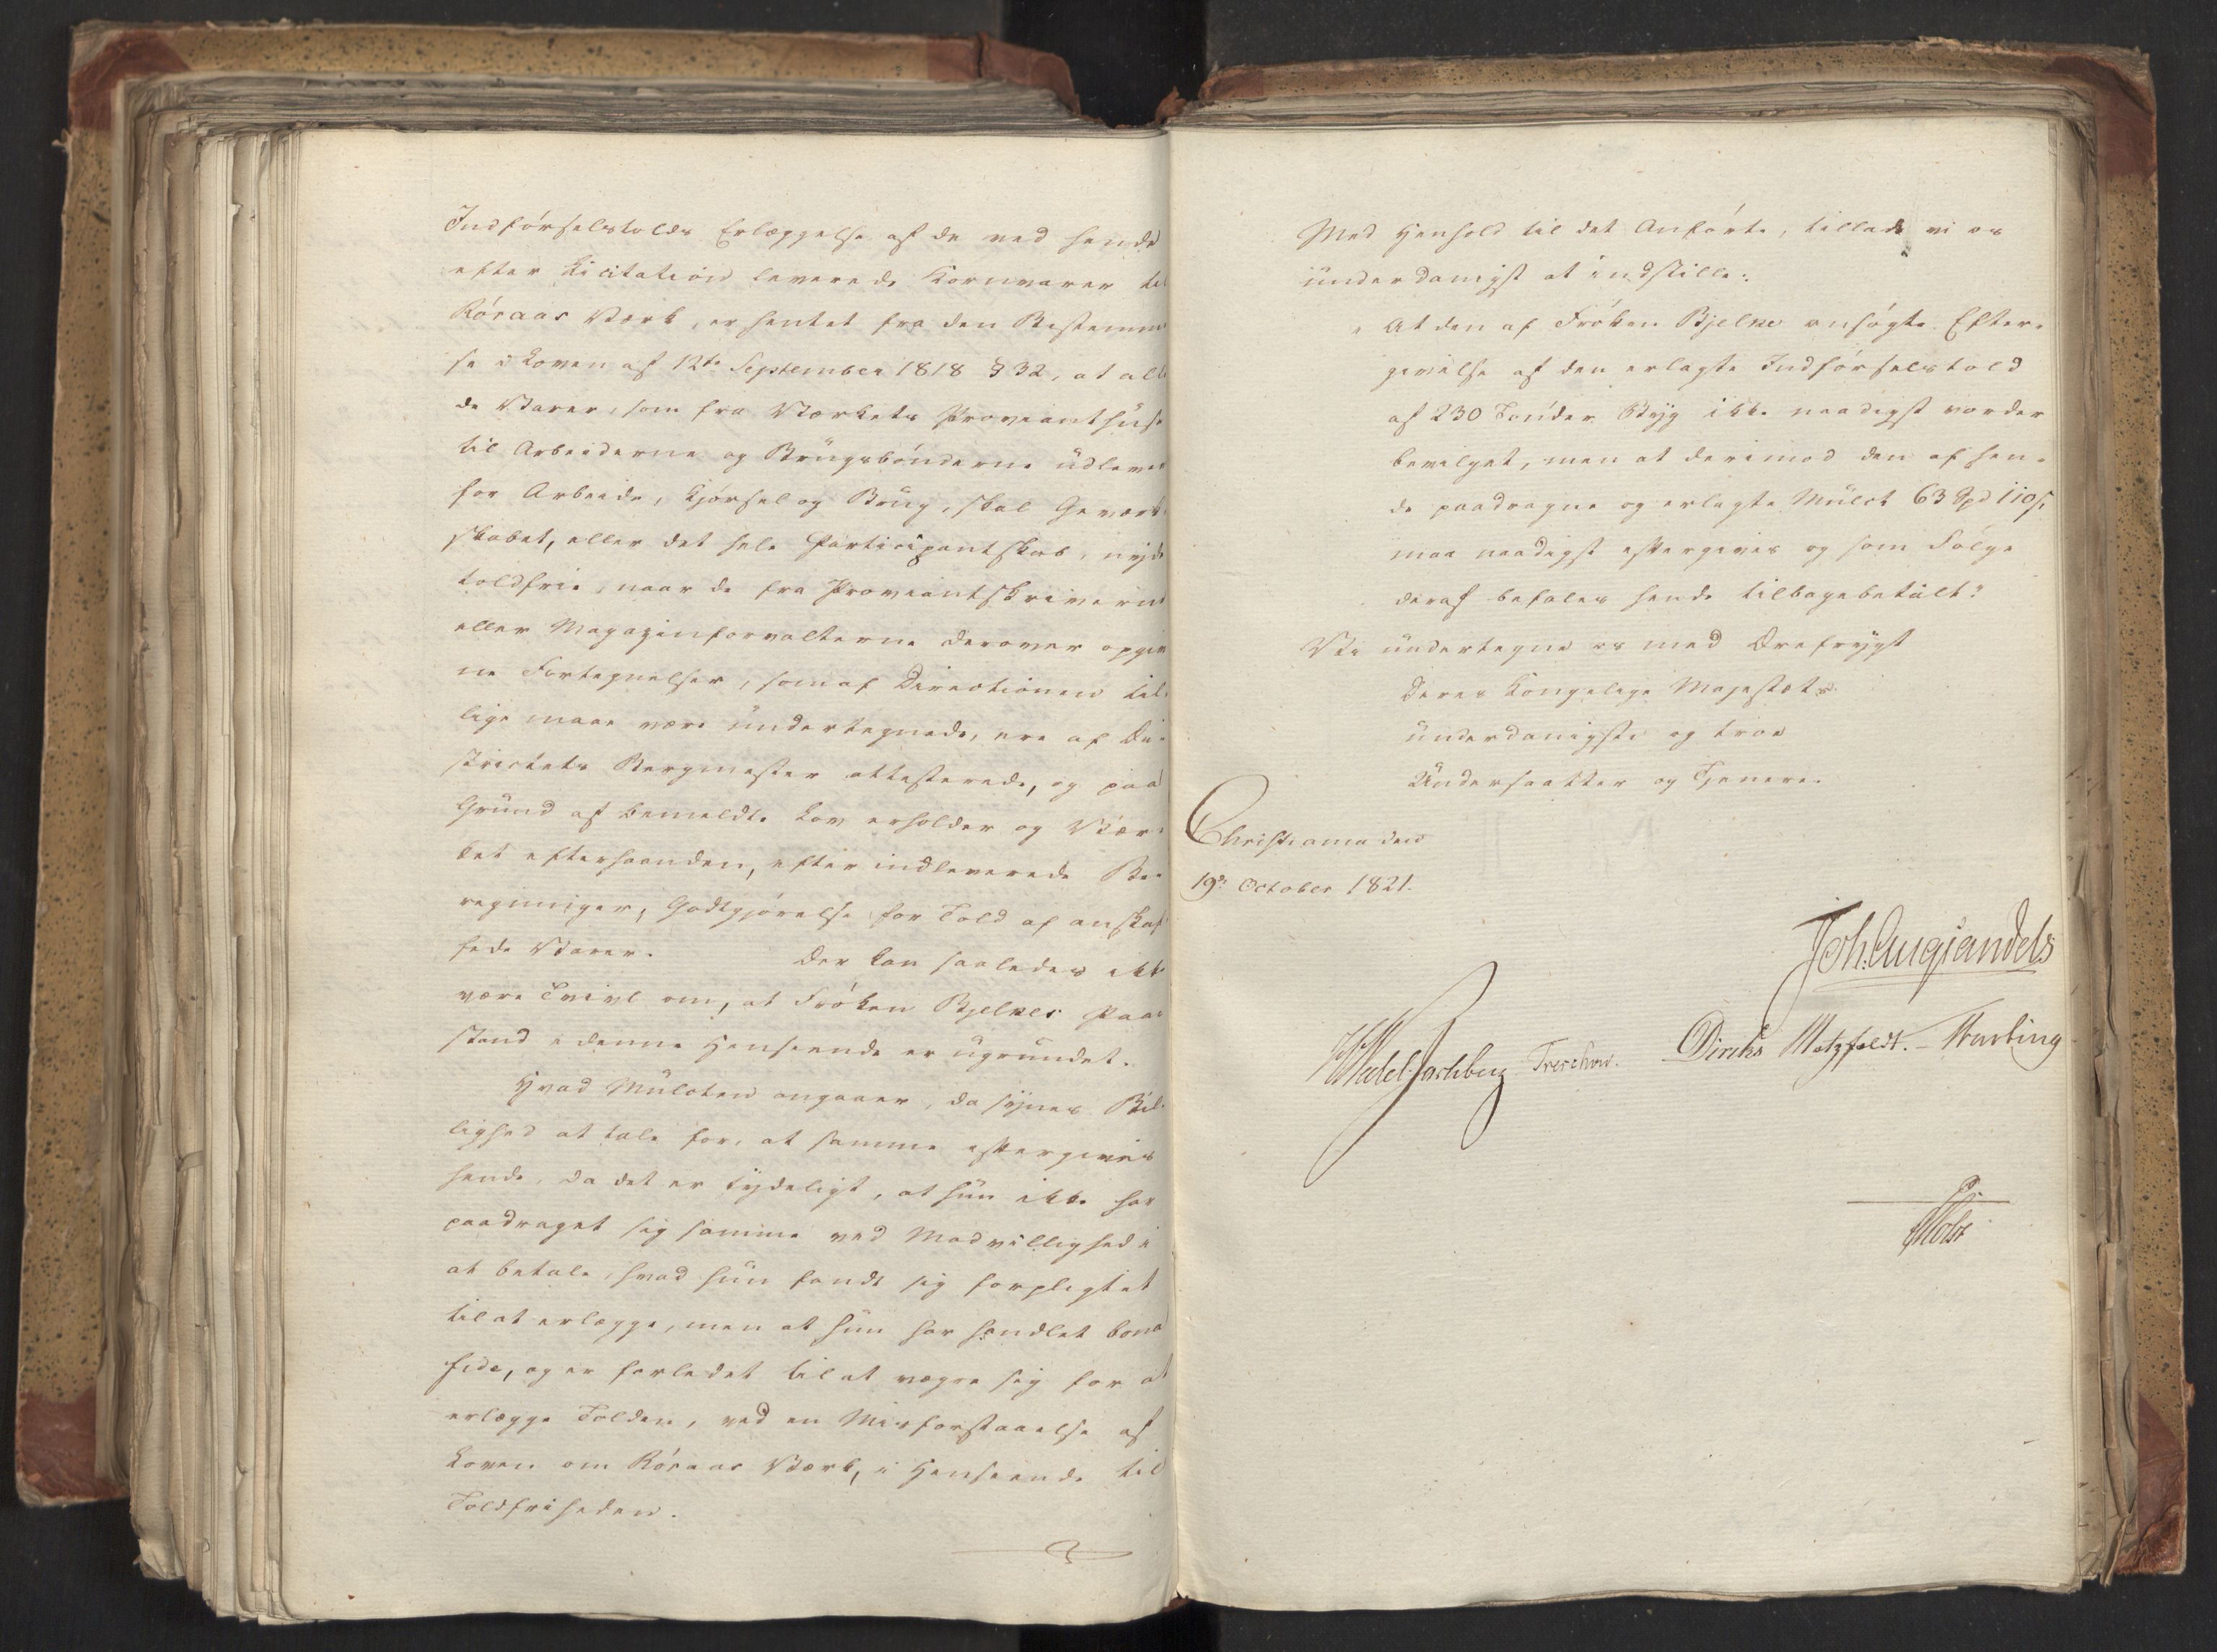 Indførselstolds Erlæggelse af de ved hende
efter Licitation leverede Kornvarer til
Røraas Værk, er hentet fra den Bestemmel
se i Loven af 12te September 1818 § 32, at alle
de Varer, som fra Værkets Provianthuse
til Arbeiderne og Brugsbønderne udlever
for Arbeide, Kjørsel og Brug, skal Geværk-
skabet, eller det hele Participantskab, nyde
toldfrie, naar de fra Proviantskriverne
eller Magazinforvalterne derover opgiv
ne Fortegnelser, som af Directionen til-
lige maae være undertegnede, ere af Di-
strictets Bergmester attesterede, og paa
Grund af bemeldte Lov erholder og Vær-
ket efterhaanden, efter indleverede Be-
regninger, Godtgjørelse for Told af anskaf
fede Varer. Der kan saaledes ikke
være Tvivl om, at Frøken Bjelkes Paa-
stand i denne Henseende er ugrundet.
Hvad Mulcten angaaer, da synes Bil-
lighed at tale for, at samme eftergives
hende, da det er tydeligt, at hun ikke har
paadraget sig samme ved Modvillighed i
at betale, hvad hun fandt sig forpligtet
til at erlægge, men at hun har handlet bona
fide, og er forledet til at vægre sig for at
erlægge Tolden, ved en Misforstaaelse af
Loven om Røraas Værk, i Henseende til
Toldfriheden.
Med Henhold til det Anførte, tillade vi os
underdanigst at indstille:
"At den af Frøken Bjelke ansøgte Efter-
givelse af den erlagte Indførselstold
af 230 Tønder Byg ikke naadigst vorder
bevilget, men at derimod den af hen-
de paadragne og erlagte Mulct 63 Spd 110 s,
maa naadigst eftergives og som Følge
deraf befales hende tilbagebetalt."
Vi undertegne os med Ærefrygt
Deres Kongelige Majestæts
underdanigste og troe
Undersaatter og Tjenere.
Christiania den
19de October 1821.
Joh. Aug. Sandels
HWedel Jarlsberg Treschow. Diriks Motzfeldt.
Holst